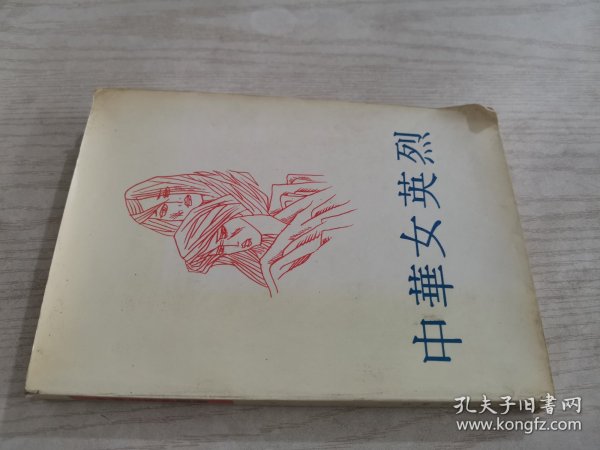 中華女英烈
孔夫子旧書网
www.kongfz.com